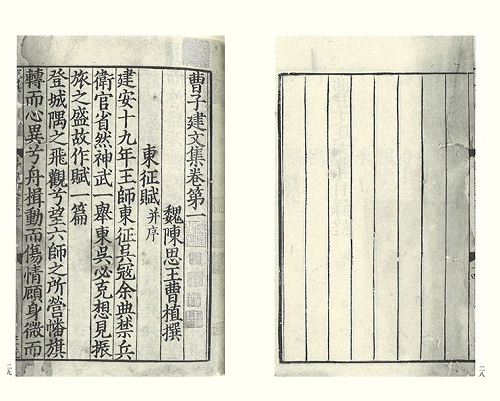 曹子建文集卷第一
魏陳思王曹植撰
東征賦并序
建安十九年王師東征吳寇余典禁兵
衛官省然神武一舉東吳必克想見振
旅之盛故作賦一篇
登城隅之飛觀兮望六師之所營幡旗
轉而心異兮舟楫動而傷情顧身微而
二九
二八